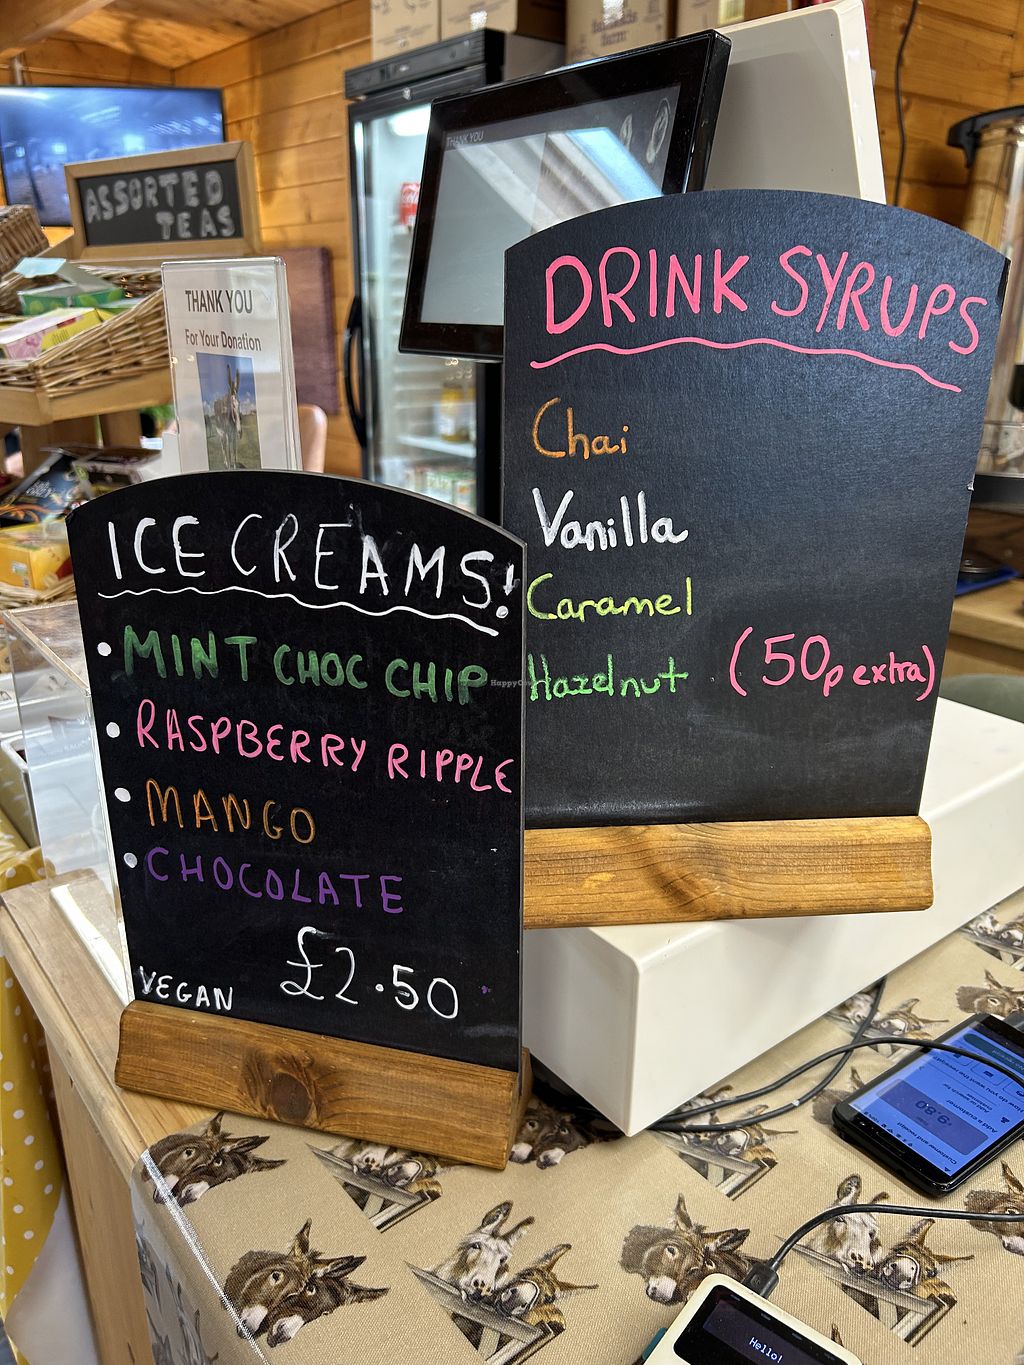 ASSORTED
TEAS
THANK YOU
THANK YOU
For Your Donation
DRINK SYRUPS
Chai
Vanilla
Caramel
Hazelnut (50p extra)
ICE CREAMS!
• MINT CHOC CHIP
• RASPBERRY RIPPLE
• MANGO
• CHOCOLATE
£2.50
VEGAN
HappyCow
9.80
Hello!